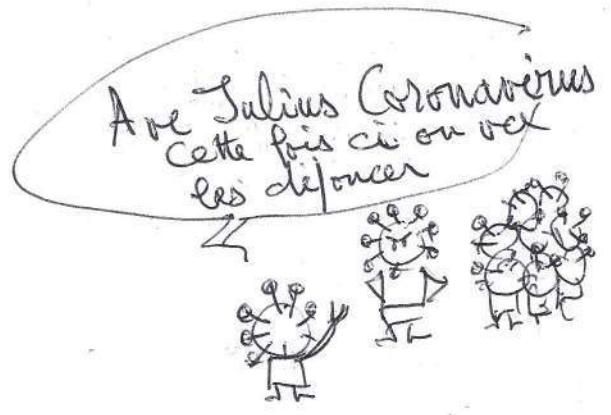 Ave Julius Coronavirus
cette fois ci on vex
les défoncer